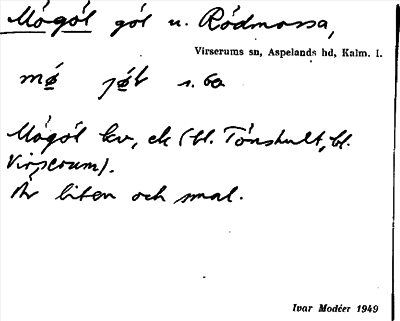 Mógól gól u. Ródmossa,
Virserums sn, Aspelands hd, Kalm. l.
mǿ jǿl s. 60
Mógól kv, ek (bl. Tónshult, bl.
Virserum).
Är liten och smal.
Ivar Modéer 1949